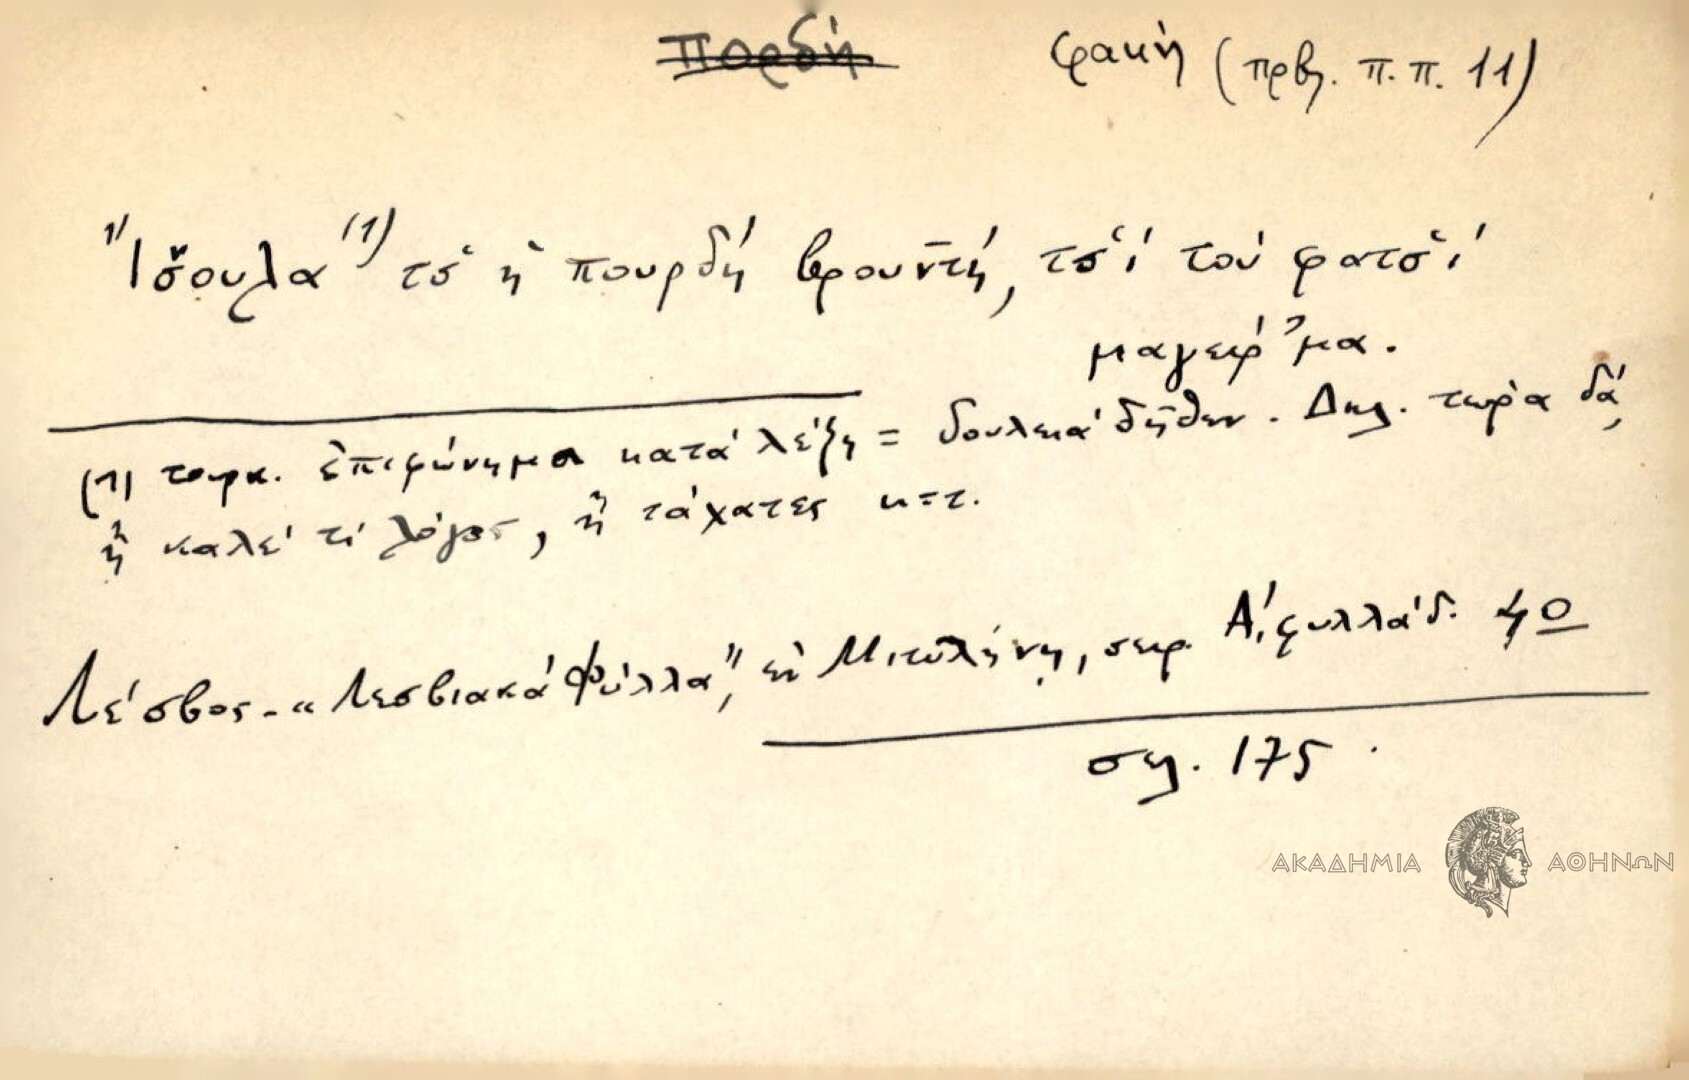 πορδή φακή (πρβλ. π.π. 11)
Ἴσ̌ουλα (1) τσ̌ ἡ πουρδή βρουντή, τσ̌ί τού φατσ̌ί
μαγειρ'μα.
(1) τουρκ. ἐπιφώνημα κατά λέξη = δουλειά δῆθεν. Δηλ. τώρα δά,
ἤ καλέ τί λόγος, ἤ τάχατες κ=τ.
Λέσβος - "Λεσβιακά Φύλλα", ἐν Μιτυλήνῃ, σειρ. Α', φυλλάδ. 4ο
σελ. 175.
ΑΚΑΔΗΜΙΑ ΑΘΗΝΩΝ